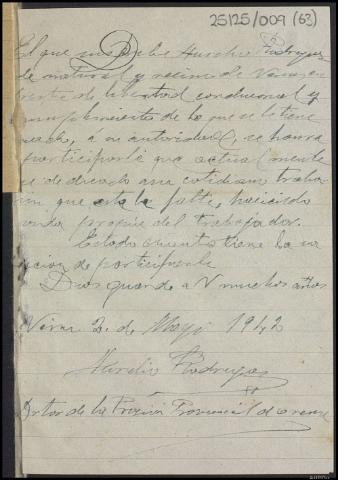 25125/009 (63)
El que suscribe Aurelio Rodrigez
de natural y vecino de Verin en
de libertad condicional y
cumplimiento de lo que se le tiene
a su autoridad, se honra
participarle que actualmente
se dedicado a su cotidiano traba
sin que esta le falte, haciendo
vida propia del trabajador.
Es todo cuanto tiene la
de participarle
Dios guarde a V muchos años
Verin 2 de Mayo 1942
Aurelio Rodrigez
Drtor de la Prision Provincial de Orense